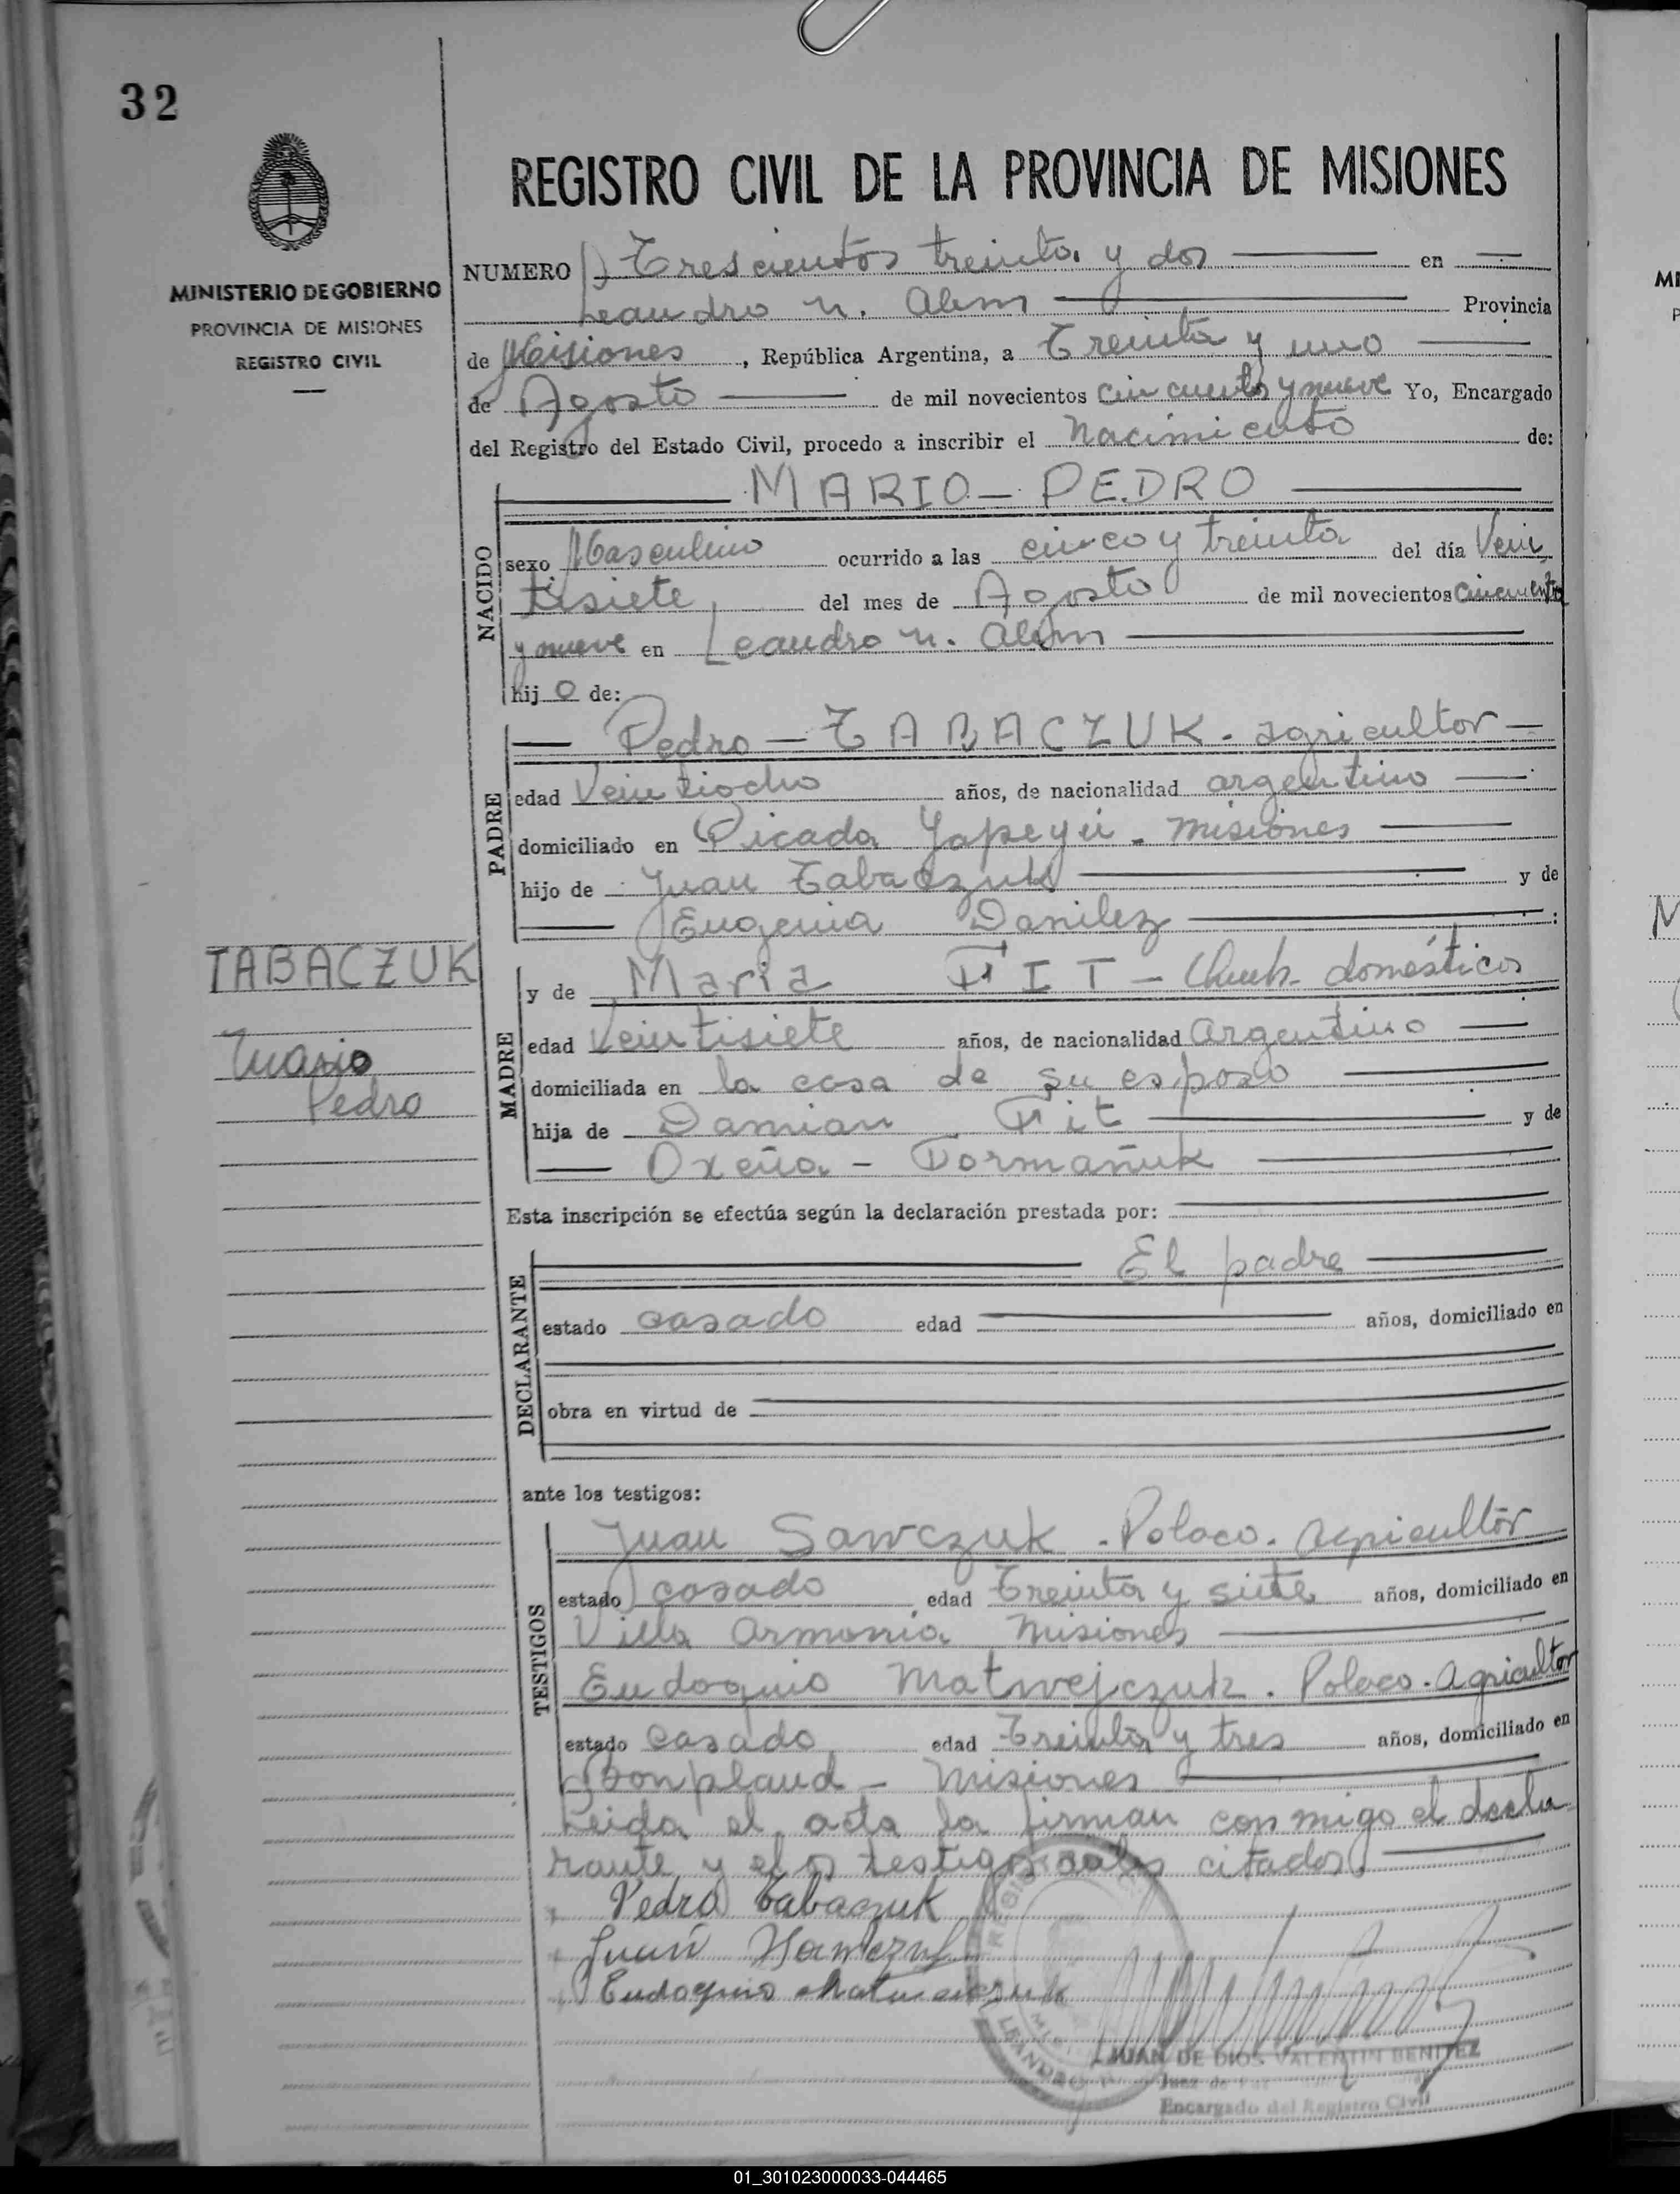 32
MINISTERIO DE GOBIERNO
PROVINCIA DE MISIONES
REGISTRO CIVIL
REGISTRO CIVIL DE LA PROVINCIA DE MISIONES
NUMERO Trescientos treinta y dos en
Leandro N. Alem Provincia
de Misiones, República Argentina, a Treinta y uno
de Agosto de mil novecientos cincuenta y nueve Yo, Encargado
del Registro del Estado Civil, procedo a inscribir el Nacimiento de:
MARIO - PEDRO
NACIDO
sexo Masculino ocurrido a las cinco y treinta del día Vein
tisiete del mes de Agosto de mil novecientos cincuenta
y nueve en Leandro N. Alem
hijo de:
PADRE
Pedro - TABACZUK - agricultor
edad Veintiocho años, de nacionalidad argentino
domiciliado en Picada Yapeyú - Misiones
hijo de Juan Tabaczuk y de
Eugenia Danilez
TABACZUK
Mario
Pedro
MADRE
y de Maria FIT - domésticos
edad Veintisiete años, de nacionalidad Argentino
domiciliada en la casa de su esposo
hija de Damian Fit y de
Oxeña - Formañuk
Esta inscripción se efectúa según la declaración prestada por:
DECLARANTE
El padre
estado casado edad años, domiciliado en
obra en virtud de
ante los testigos:
TESTIGOS
Juan Sawczuk - Polaco - Agricultor
estado casado edad Treinta y siete años, domiciliado en
Villa Armonia Misiones
Eudoquio Matwejczuk - Polaco - Agricultor
estado casado edad Treinta y tres años, domiciliado en
Bonpland - Misiones
Leida el acta la firman conmigo el decla
rante y los testigos citados.
Pedro Tabaczuk
Juan Sawczuk
Eudoquio
JUAN DE DIOS VALENTIN BENITEZ
Juez de Paz
Encargado del Registro Civil
01_301023000033-044465